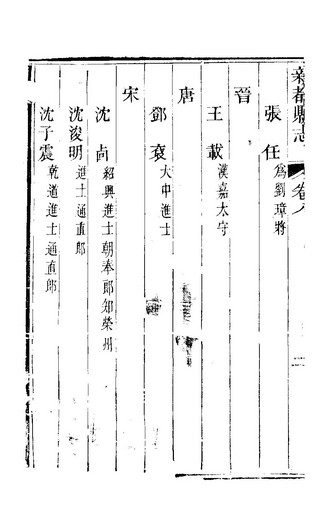 新都縣志 卷八 二
張任 爲劉璋將
晉
王載 漢嘉太守
唐
鄧衮 大中進士
宋
沈卣 紹興進士朝奉郎知榮州
沈浚明 進士通直郎
沈子震 乾道進士通直郎